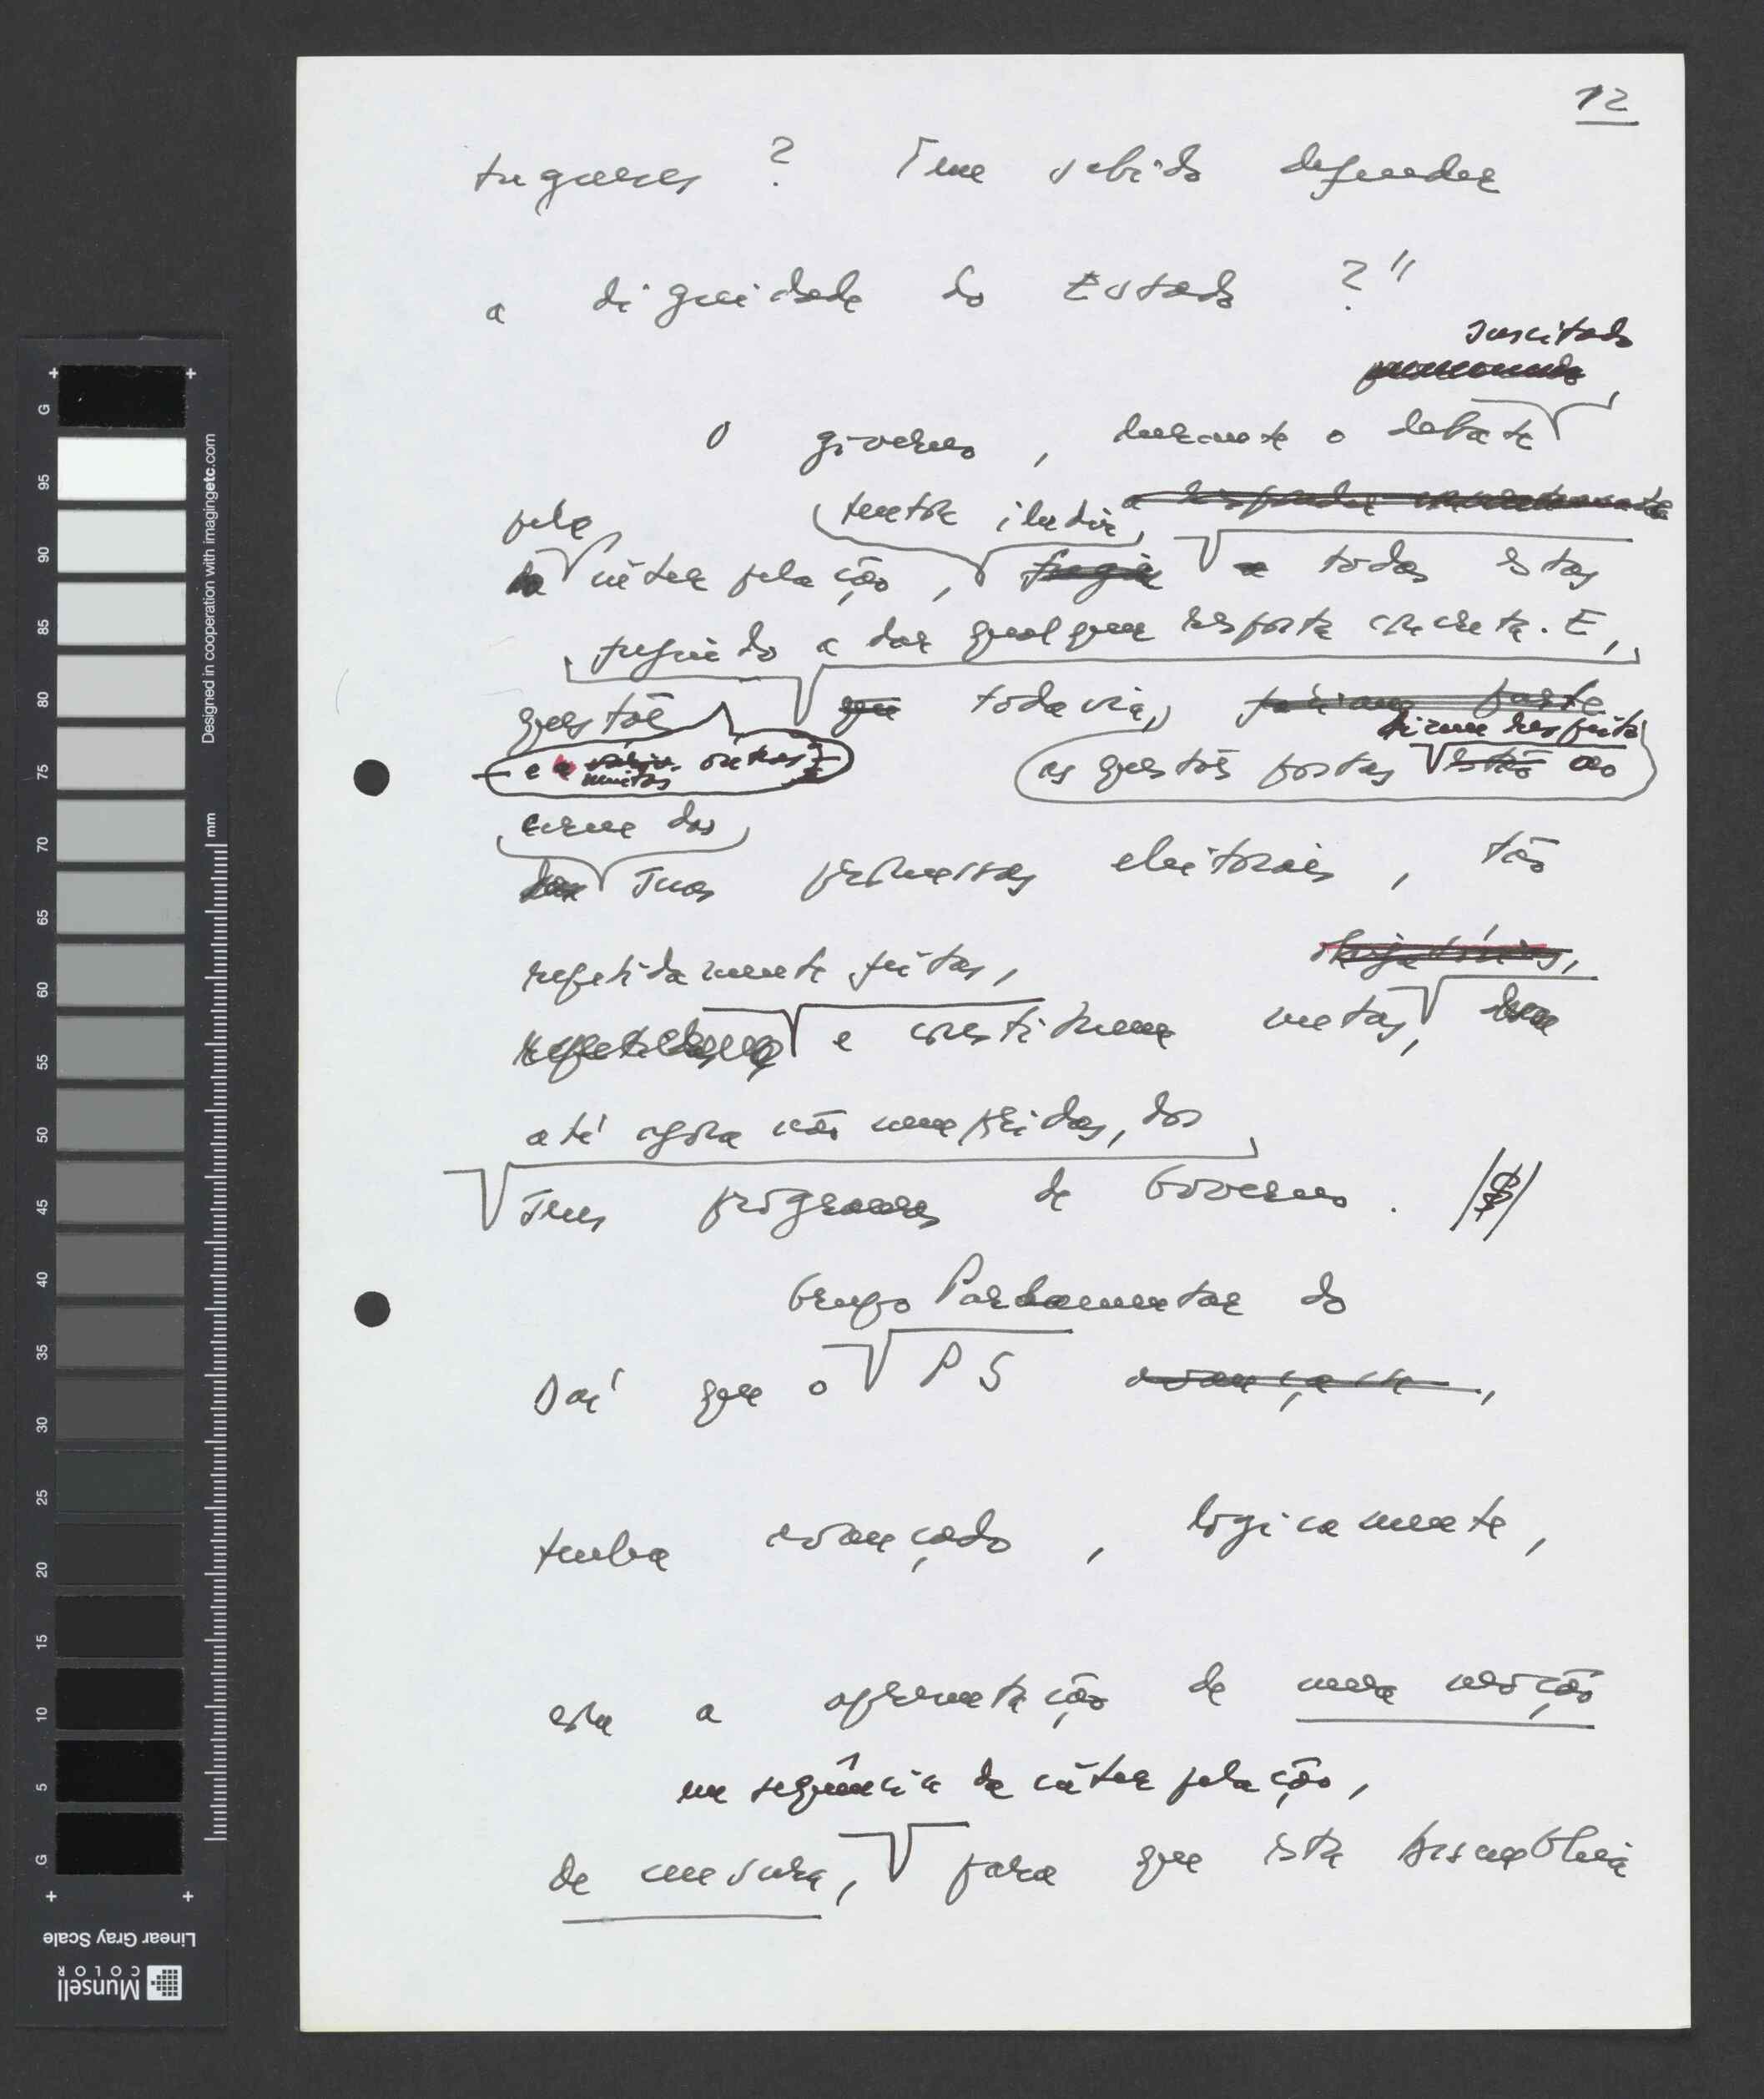 12
tugueses ? Tem sabido defender
a dignidade do Estado ?"
suscitado
O governo , durante o debate
pela tentou iludir a responder concretamente
da interpelação , fugiu a todas estas
fugindo a dar qualquer resposta concreta. E,
questões que todavia, faziam parte
dizem respeito
– e a várias outras – as questões postas estão ao
muitas
cerne das
das suas promessas eleitorais , tão
repetidamente feitas, obrigatórias,
repetidas e constituem metas,
até agora não cumpridas, dos
seus programas de Governo . /$/
Grupo Parlamentar do
Daí que o PS avançasse ,
tenha avançado , logicamente,
com a apresentação de uma moção
na sequência da interpelação,
de censura, para que esta Assembleia
G 95 90 85 80 75 70 65 60 55 50 45 40 35 30 25 20 15 10 5 G
Designed in cooperation with imagingetc.com
mm
Linear Gray Scale
Munsell
COLOR